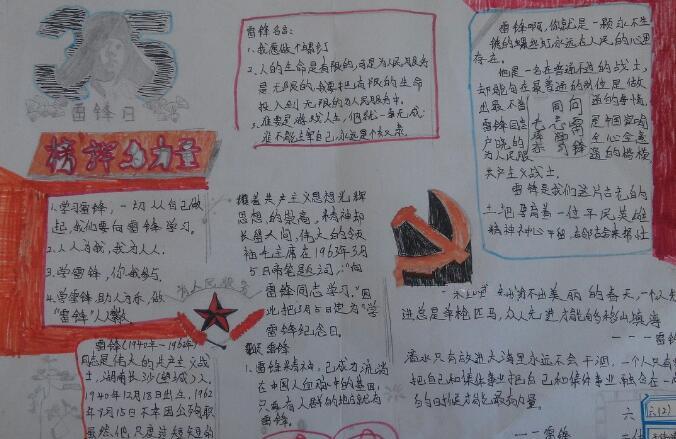 35
雷锋日
榜样的力量
1.学习雷锋，一切从自己做
起，我们要向雷锋学习。
2.人人为我，我为人人。
3.学雷锋，你我参与。
4.学雷锋，助人为乐，做
"雷锋"人
雷锋名言：
1.我愿做个螺丝钉
2.人的生命是有限的，可是为人民服务
是无限的，我要把有限的生命
投入到无限的为人民服务中。
3.谁要是游戏人生，他就一事无成；
谁不能主宰自己，永远是个奴隶。
雷锋啊，你就是一颗永不生
锈的螺丝钉永远在人民的心里
存在。
他是一名在普通不过的战士，
却能够在最普通的岗位是做
出最不普通的事情，
雷锋同志是中国家喻
户晓的全心全意
为人民服 的楷模
共产主义战士。
向雷锋同志学习
雷锋是我们这片古老的
土 一位平民英雄
精神
为人民服务
共产主义思想光辉
思想的崇高，精神却
长留人间，伟大的领
袖毛主席在1963年3月
5日亲笔题词："向
雷锋同志学习。"因
此把3月5日定为"学
雷锋纪念日。
雷锋
1.雷锋精神，已成为流淌
在中国人血脉中的基因，
只要有人群的地方就有
雷锋。
雷锋(1940年—1962年)
同志是伟大的共产主义战
士，湖南长沙(望城)人，
1940年12月18日出生，1962
年7月15日不幸因公殉职
虽然他只度过短短的
一朵 不出美丽的春天，一个人先
进总是单枪匹马，众人先进才能
———雷
滴水只有放进大海里永远不会干涸，一个人只有
把自己和集体事业 融合在一
的时候才能最有力量。
——雷锋
六(2)